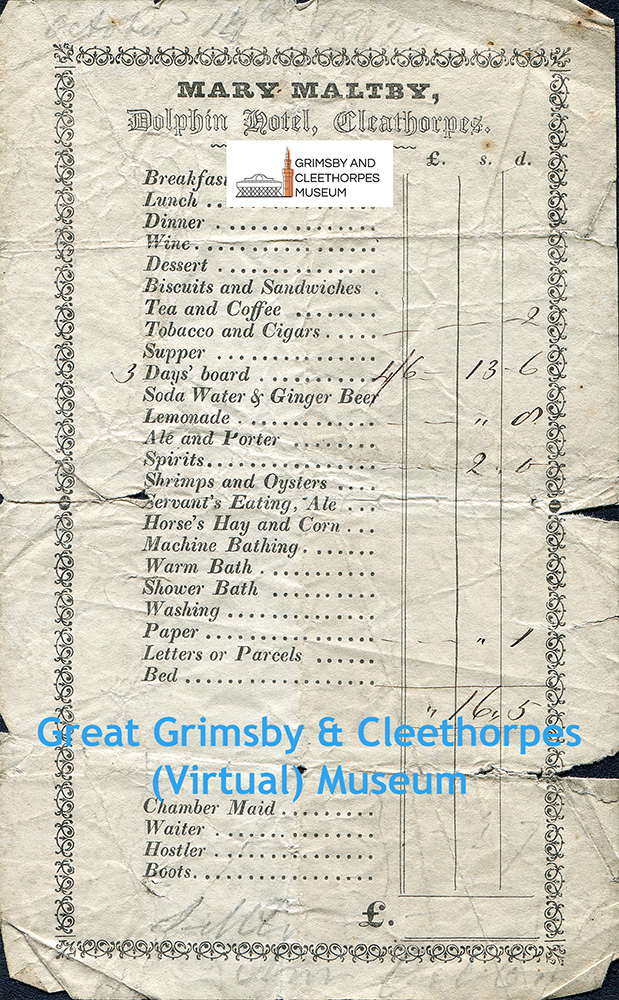 October 14th
MARY MALTBY,
Dolphin Hotel, Cleathorpes.
£. s. d.
GRIMSBY AND
CLEETHORPES
MUSEUM
Breakfast
Lunch ..................
Dinner ..................
Wine..................
Dessert ..................
Biscuits and Sandwiches .
Tea and Coffee ........
Tobacco and Cigars ..... — — — 2
Supper ..................
3 Days' board ........... 4/6 — 13 - 6
Soda Water & Ginger Beer
Lemonade ............. — — " 8
Ale and Porter ........
Spirits.................. 2 "
Shrimps and Oysters ....
Servant's Eating, Ale ...
Horse's Hay and Corn ...
Machine Bathing.......
Warm Bath ...........
Shower Bath ..........
Washing ...............
Paper .................. — — " 1
Letters or Parcels ......
Bed ....................
" 16 " 5
Great Grimsby & Cleethorpes
(Virtual) Museum
Chamber Maid .........
Waiter ................
Hostler ................
Boots..................
£.